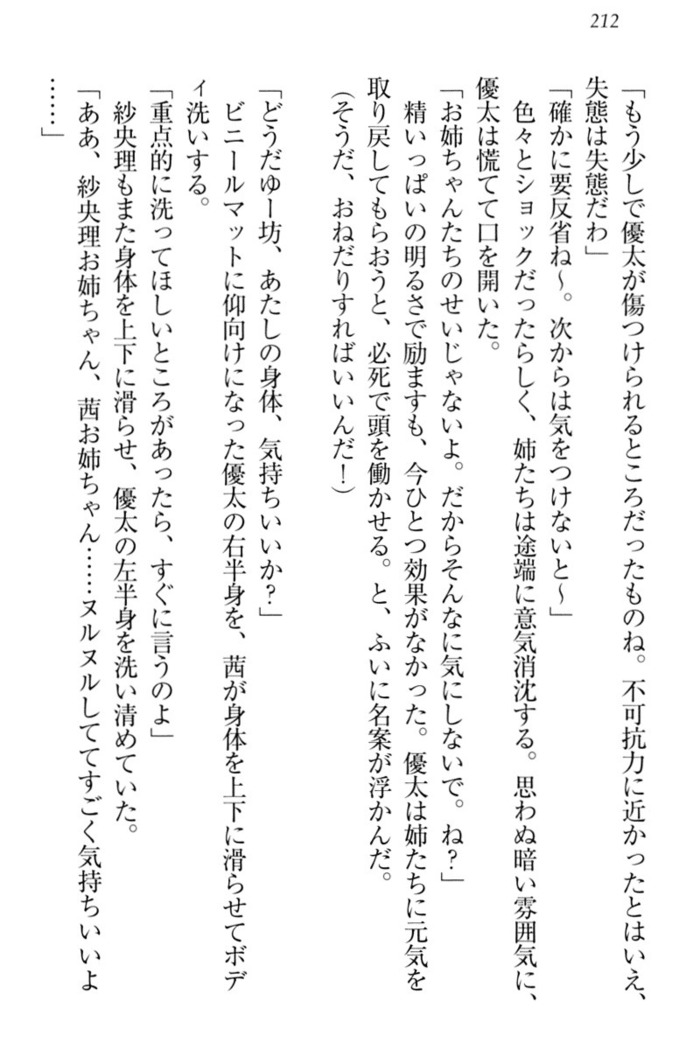 212
「もう少しで優太が傷つけられるところだったものね。不可抗力に近かったとはいえ、
失態は失態だわ」
「確かに要反省ね～。次からは気をつけないと～」
色々とショックだったらしく、姉たちは途端に意気消沈する。思わぬ暗い雰囲気に、
優太は慌てて口を開いた。
「お姉ちゃんたちのせいじゃないよ。だからそんなに気にしないで。ね？」
精いっぱいの明るさで励ますも、今ひとつ効果がなかった。優太は姉たちに元気を
取り戻してもらおうと、必死で頭を働かせる。と、ふいに名案が浮かんだ。
（そうだ、おねだりすればいいんだ！）
「どうだゆー坊、あたしの身体、気持ちいいか？」
ビニールマットに仰向けになった優太の右半身を、茜が身体を上下に滑らせてボデ
ィ洗いする。
「重点的に洗ってほしいところがあったら、すぐに言うのよ」
紗央理もまた身体を上下に滑らせ、優太の左半身を洗い清めていた。
「ああ、紗央理お姉ちゃん、茜お姉ちゃん……ヌルヌルしててすごく気持ちいいよ
……」